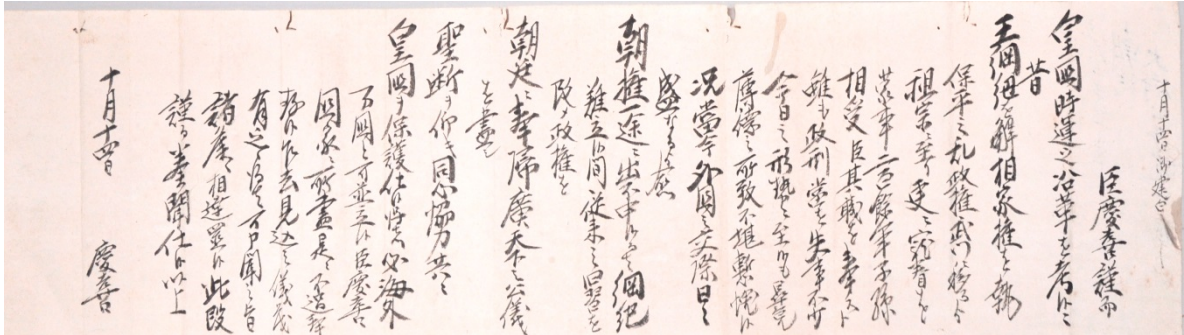 十月十四日御建白
臣慶喜謹而
皇國時運之沿革を考候ニ
昔
王綱紐を解相家権を執
保平之乱政権武門ニ移てより
祖宗ニ至り更ニ寵眷を
蒙事二百餘年子孫
相受臣其職を奉すと
雖も政刑當を失事不少
今日之形勢ニ至候も畢竟
薄徳之所致不堪慙懼候
況當今外國之交際日ニ
盛なるにより愈
朝権一途ニ出不申候而者綱紀
難立候間従来之旧習を
改め政権を
朝廷ニ奉帰廣天下之公儀
を盡し
聖断を仰き同心協力共ニ
皇國を保護仕候得者必海外
万國と可並立候臣慶喜
國家ニ所盡是ニ不過奉
存候乍去見込之儀も
有之候得者可申聞之旨
諸侯江相達置候此段
謹而奏聞仕候以上
十月十四日
慶喜